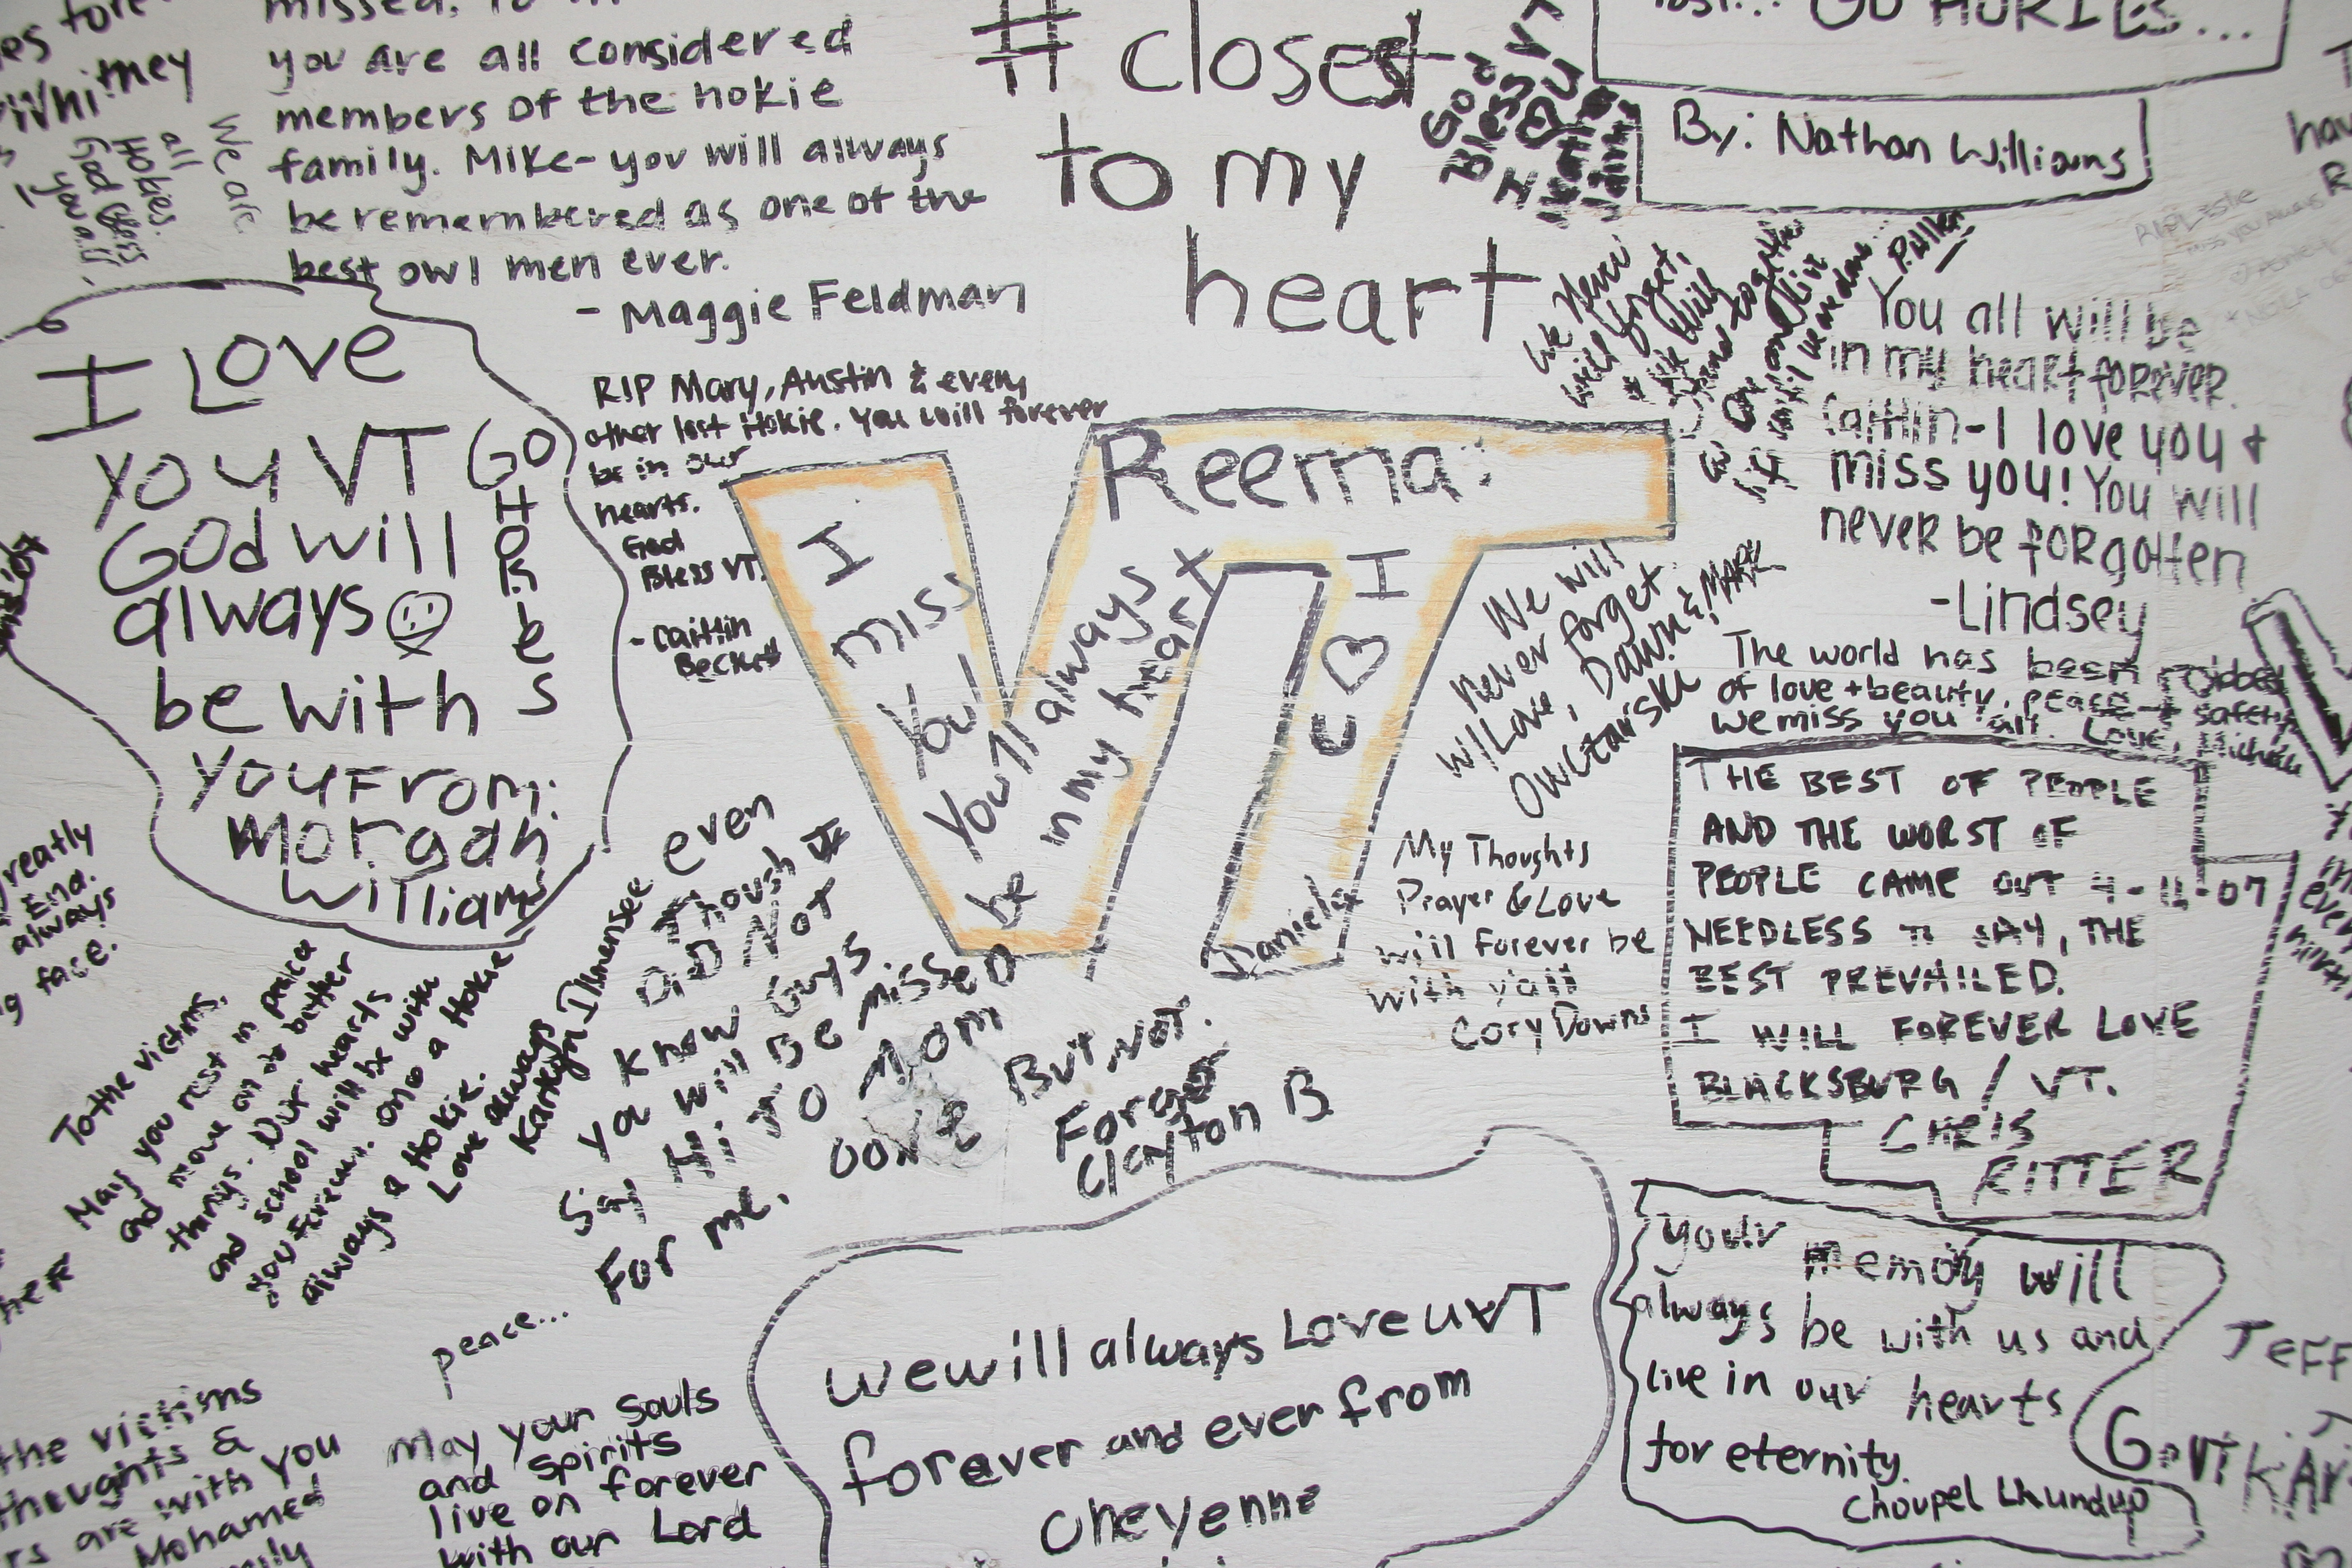 you are all considered
members of the hokie
family. Mike- you will always
be remembered as one of the
best owl men ever.
- Maggie Feldman
Whitney
We are
all
Hokies.
God Bless
you all!
#closest
to my
heart
God
Bless VT
I ♡ U
GO HOKIES...
By: Nathan Williams
I Love
you VT
God will
always
be with
you From:
Morgan
William
GO
Hokies
RIP Mary, Austin & every
other lost Hokie. You will forever
be in our
hearts.
God
Bless VT.
- Caitlin
Beckett
VT
I
miss
You!
You'll always
be in my heart
Reema:
I
♡
U
Daniela
We Never
will forget,
You all will be
in my heart forever.
Caitlin - I love you +
miss you! You will
never be forgotten
-Lindsey
We will
never forget.
w/Love, Dawn & Mark
Owczarski
The world has been robbed
of love + beauty, peace + safety.
we miss you all. Love, Michele
My Thoughts
Prayer & Love
will forever be
with y'all
Cory Downs
THE BEST OF PEOPLE
AND THE WORST OF
PEOPLE CAME OUT
NEEDLESS TO SAY, THE
BEST PREVAILED.
I WILL FOREVER LOVE
BLACKSBURG / VT.
CHRIS
RITTER
To the victims,
May you rest in peace
and move on to better
things. Our hearts
and school will be with
you forever. Once a Hokie
always a Hokie.
Love always
even
Though I
DID NOT
Know Guys.
You will Be missed
Say Hi TO Mom
For me.
Gone But not
Forgotten
Clayton B
peace...
May your souls
and spirits
live on forever
with our Lord
we will always Love u VT
forever and ever from
Cheyenne
your memory will
always be with us and
live in our hearts
for eternity.
Choupel Lhundup
greatly
End.
always
face.
the victims
thoughts &
are with you
Mohamed
Jeff